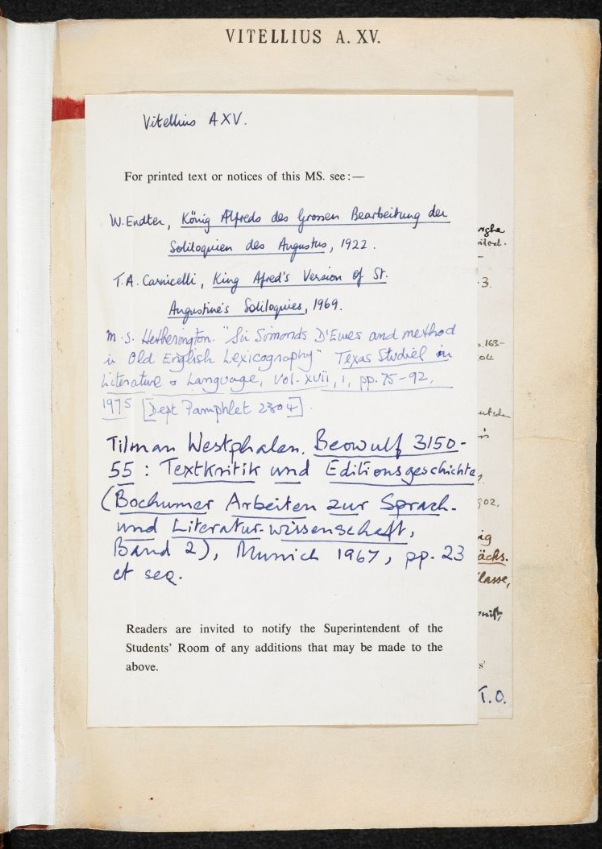 VITELLIUS A. XV.
Vitellius A XV.
For printed text or notices of this MS. see:—
W. Endter, König Alfreds des Grossen Bearbeitung der
Soliloquien des Augustus, 1922.
T.A. Carnicelli, King Alfred's Version of St.
Augustine's Soliloquies, 1969.
M. S. Hetherington. "Sir Simonds D'Ewes and method
in Old English Lexicography" Texas Studies in
Literature & Language, Vol. XVII, 1, pp. 75-92,
1975 [Dept Pamphlet 2304].
Tilman Westphalen. Beowulf 3150-
55 : Textkritik und Editionsgeschichte
(Bochumer Arbeiten zur Sprach-
und Literatur-wissenschaft,
Band 2), Munich 1967, pp. 23
et seq.
Readers are invited to notify the Superintendent of the
Students' Room of any additions that may be made to the
above.
3.
163-
902,
ächs.
lasse,
T.O.